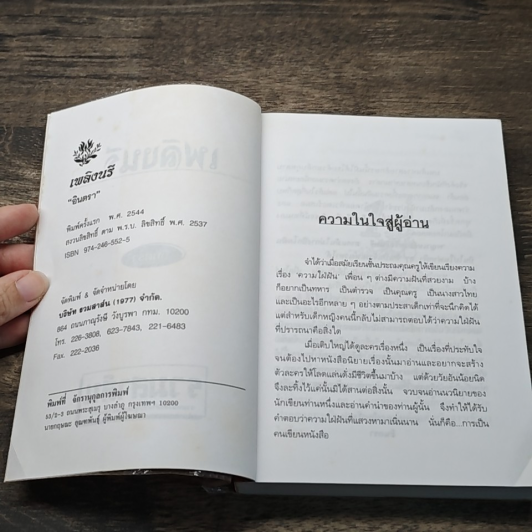 เพลิงนรี
"อินตรา"
พิมพ์ครั้งแรก พ.ศ. 2544
สงวนลิขสิทธิ์ ตาม พ.ร.บ. ลิขสิทธิ์ พ.ศ. 2537
ISBN 974-246-552-5
จัดพิมพ์ & จัดจำหน่ายโดย
บริษัท รวมสาส์น (1977) จำกัด.
864 ถนนภาณุรังษี วังบูรพา กทม. 10200
โทร. 226-3808, 623-7843, 221-6483
Fax. 222-2036
พิมพ์ที่ จักรานุกูลการพิมพ์
53/2-3 ถนนพระสุเมรุ บางลำภู กรุงเทพฯ 10200
นายกฤษณะ ผู้พิมพ์ผู้โฆษณา
ความในใจสู่ผู้อ่าน
จำได้ว่าเมื่อสมัยเรียนชั้นประถมคุณครูให้เขียนเรียงความ
เรื่อง 'ความใฝ่ฝัน' เพื่อน ๆ ต่างมีความฝันที่สวยงาม บ้าง
ก็อยากเป็นทหาร เป็นตำรวจ เป็นคุณครู เป็นนางสาวไทย
และเป็นอะไรอีกหลาย ๆ อย่างตามประสาเด็กเท่าที่จะนึกคิดได้
แต่สำหรับเด็กหญิงคนนี้กลับไม่สามารถตอบได้ว่าความใฝ่ฝัน
ที่ปรารถนาคือสิ่งใด
เมื่อเติบใหญ่ได้ดูละครเรื่องหนึ่ง เป็นเรื่องที่ประทับใจ
จนต้องไปหาหนังสือนิยายเรื่องนั้นมาอ่านและอยากจะสร้าง
ตัวละครให้โลดแล่นดั่งมีชีวิตขึ้นมาบ้าง แต่ด้วยวัยอันน้อยนิด
จึงละทิ้งไว้แค่นั้นมิได้สานต่อสิ่งนั้น จวบจนอ่านนวนิยายของ
นักเขียนท่านหนึ่งและอ่านคำนำของท่านผู้นั้น จึงทำให้ได้รับ
คำตอบว่าความใฝ่ฝันที่แสวงหามาเนิ่นนาน นั่นก็คือ...การเป็น
คนเขียนหนังสือ